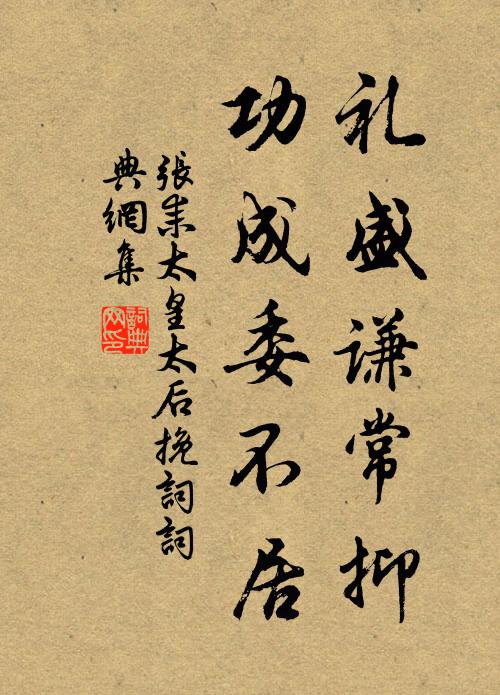 礼盛谦常抑
功成委不居
張耒太皇太后挽詞詞
典網集
詞典網印